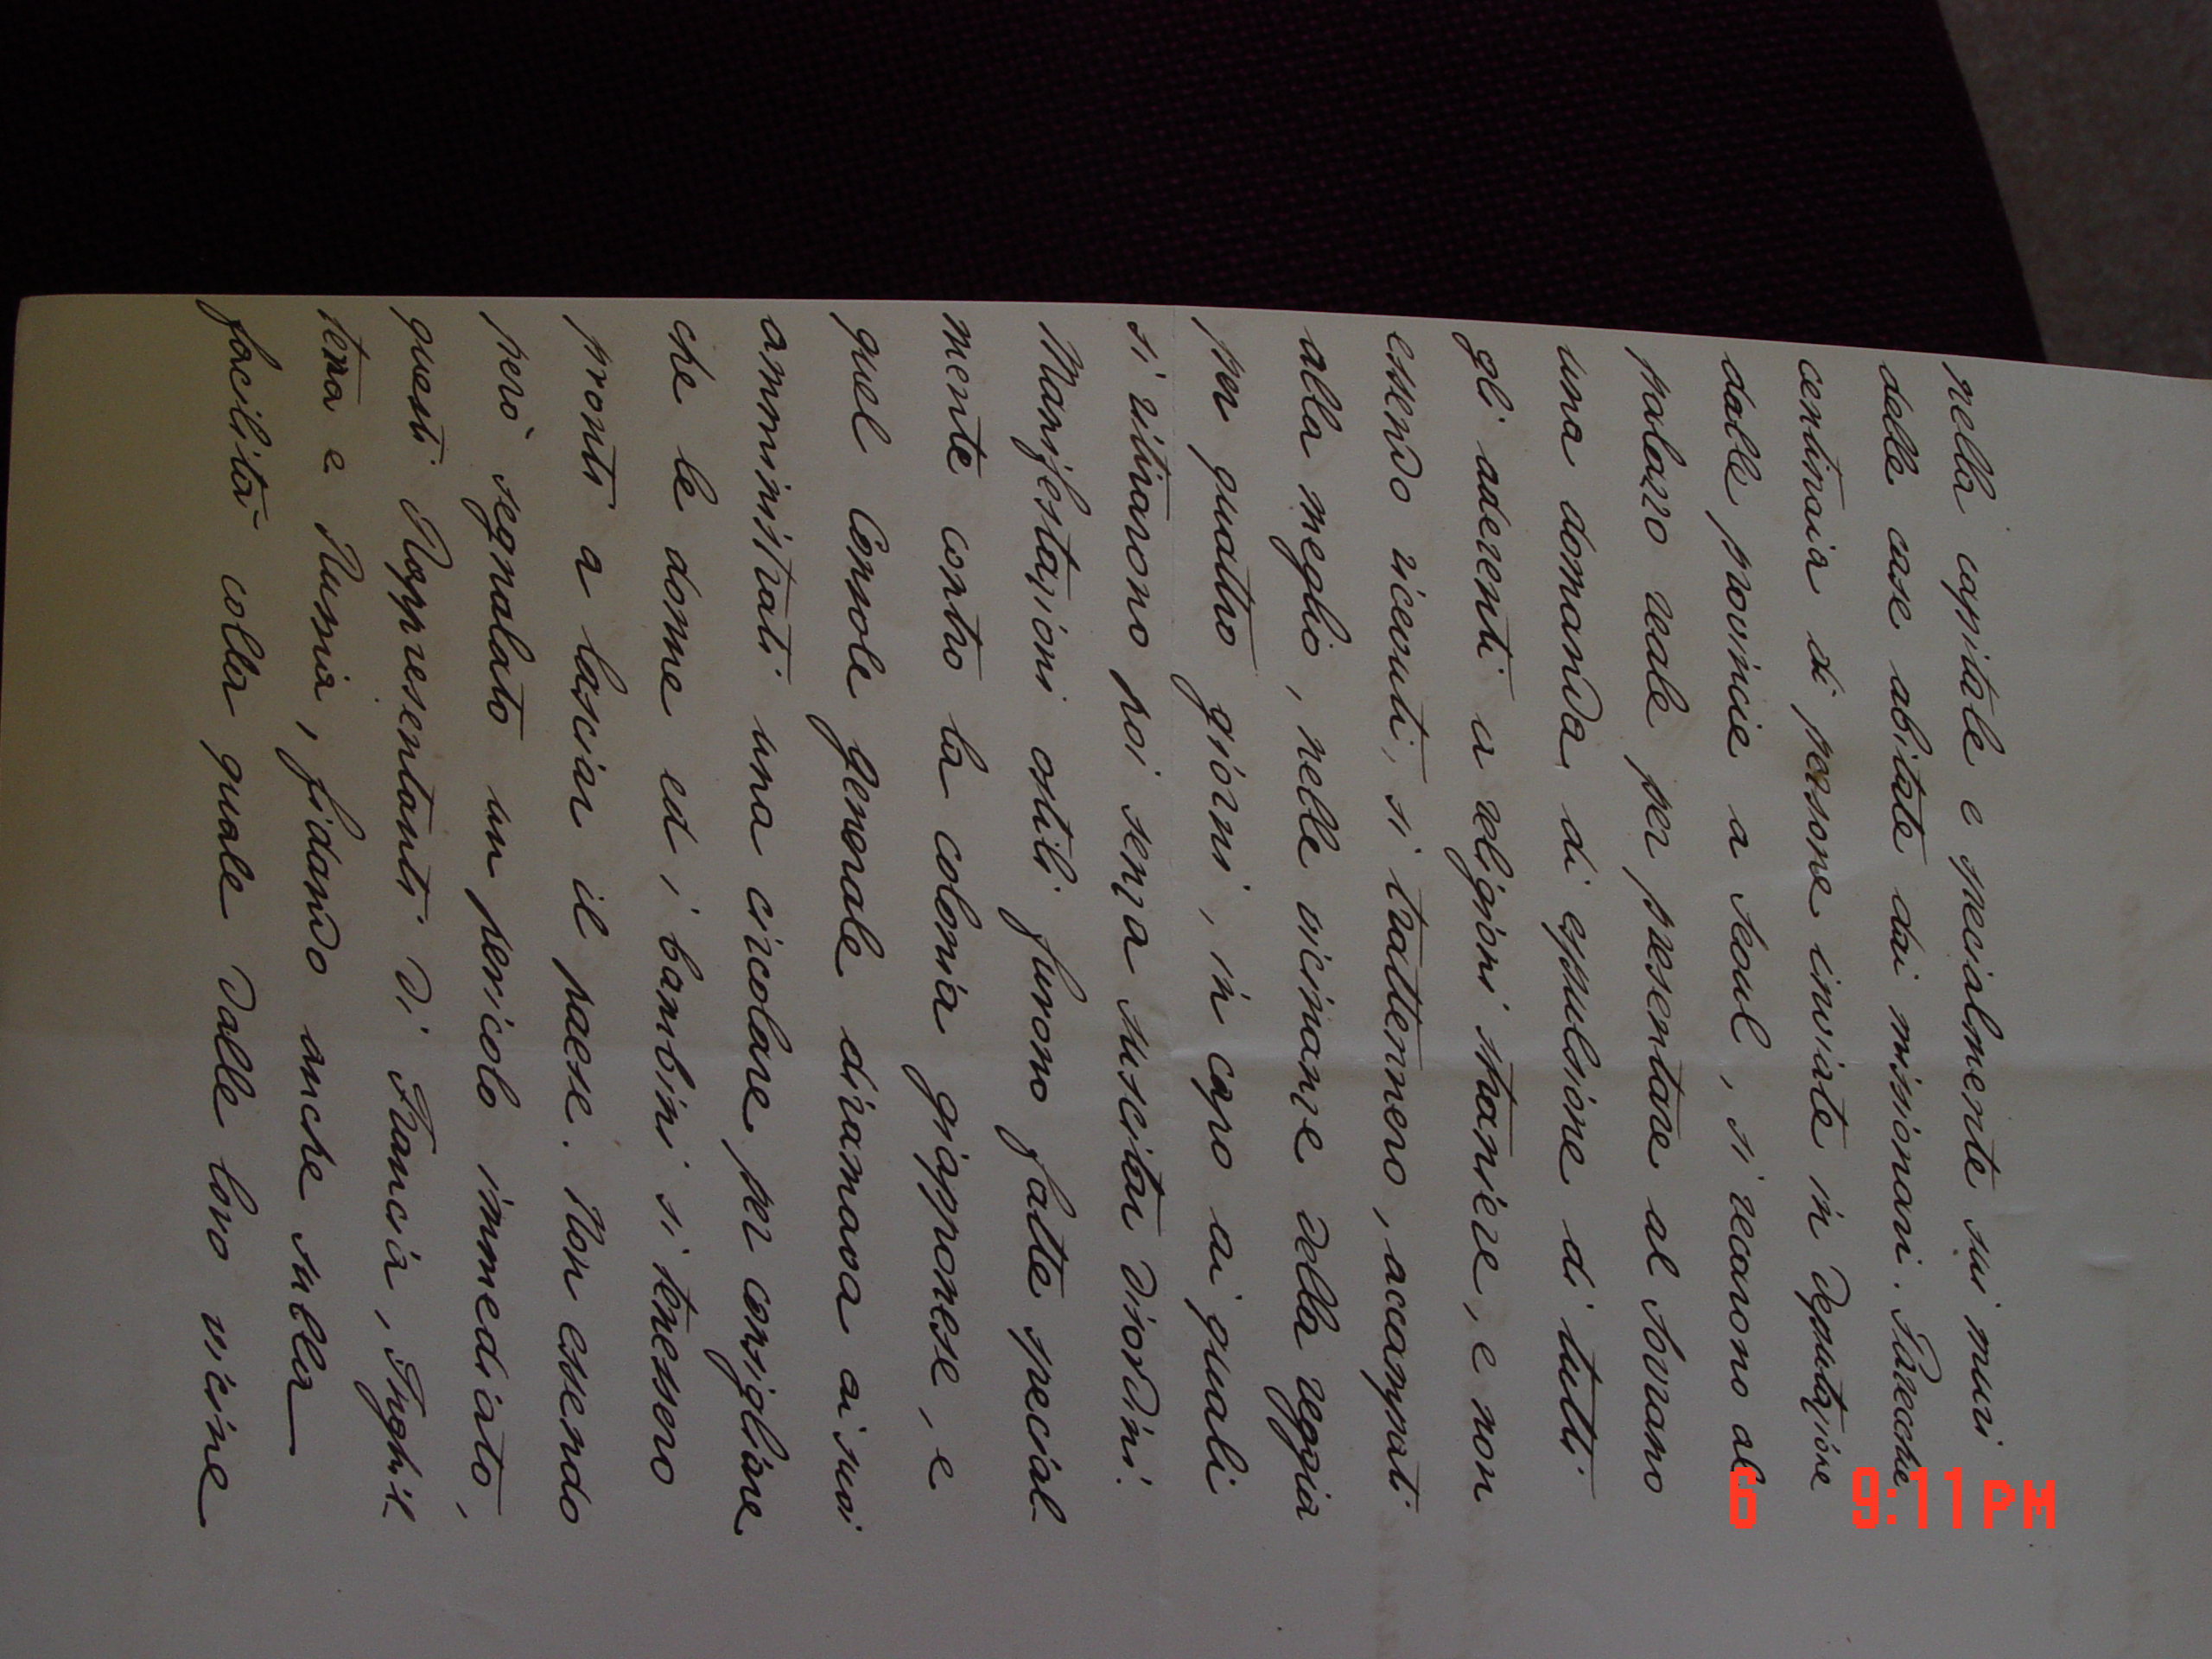 nella capitale e specialmente sui muri
delle case abitate dai missionari. Parecchie
centinaia di persone inviate in deputazione
dalle provincie a Seoul, si recarono al
palazzo reale per presentare al Sovrano
una domanda di espulsione di tutti
gli aderenti a religioni straniere, e non
essendo ricevuti, si trattennero, accampati
alla meglio, nelle vicinanze della reggia
per quattro giorni, in capo ai quali
si ritirarono poi senza suscitar disordini.
Manifestazioni ostili furono fatte special-
mente contro la colonia giapponese, e
quel Console Generale diramava ai suoi
amministrati una circolare per consigliare
che le donne ed i bambini si tenessero
pronti a lasciar il paese. Non essendo
però segnalato un pericolo immediato,
questi Rappresentanti di Francia, Inghil-
terra e Russia, fidando anche sulla
facilità colla quale dalle loro vicine
6 9:11PM